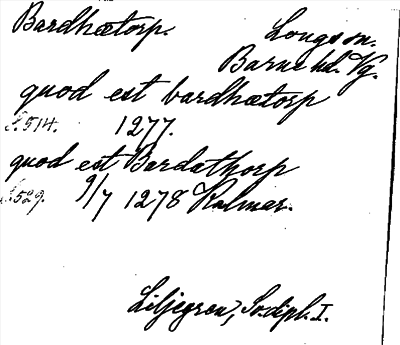 Bardhætorp. Longs sn.
Barne hd. Vg.
quod est bardhætorp
S. 514. 1277.
quod est Bardathorp
S. 529. 9/7 1278 Kalmar.
Liljegren, Sv. dipl. I.